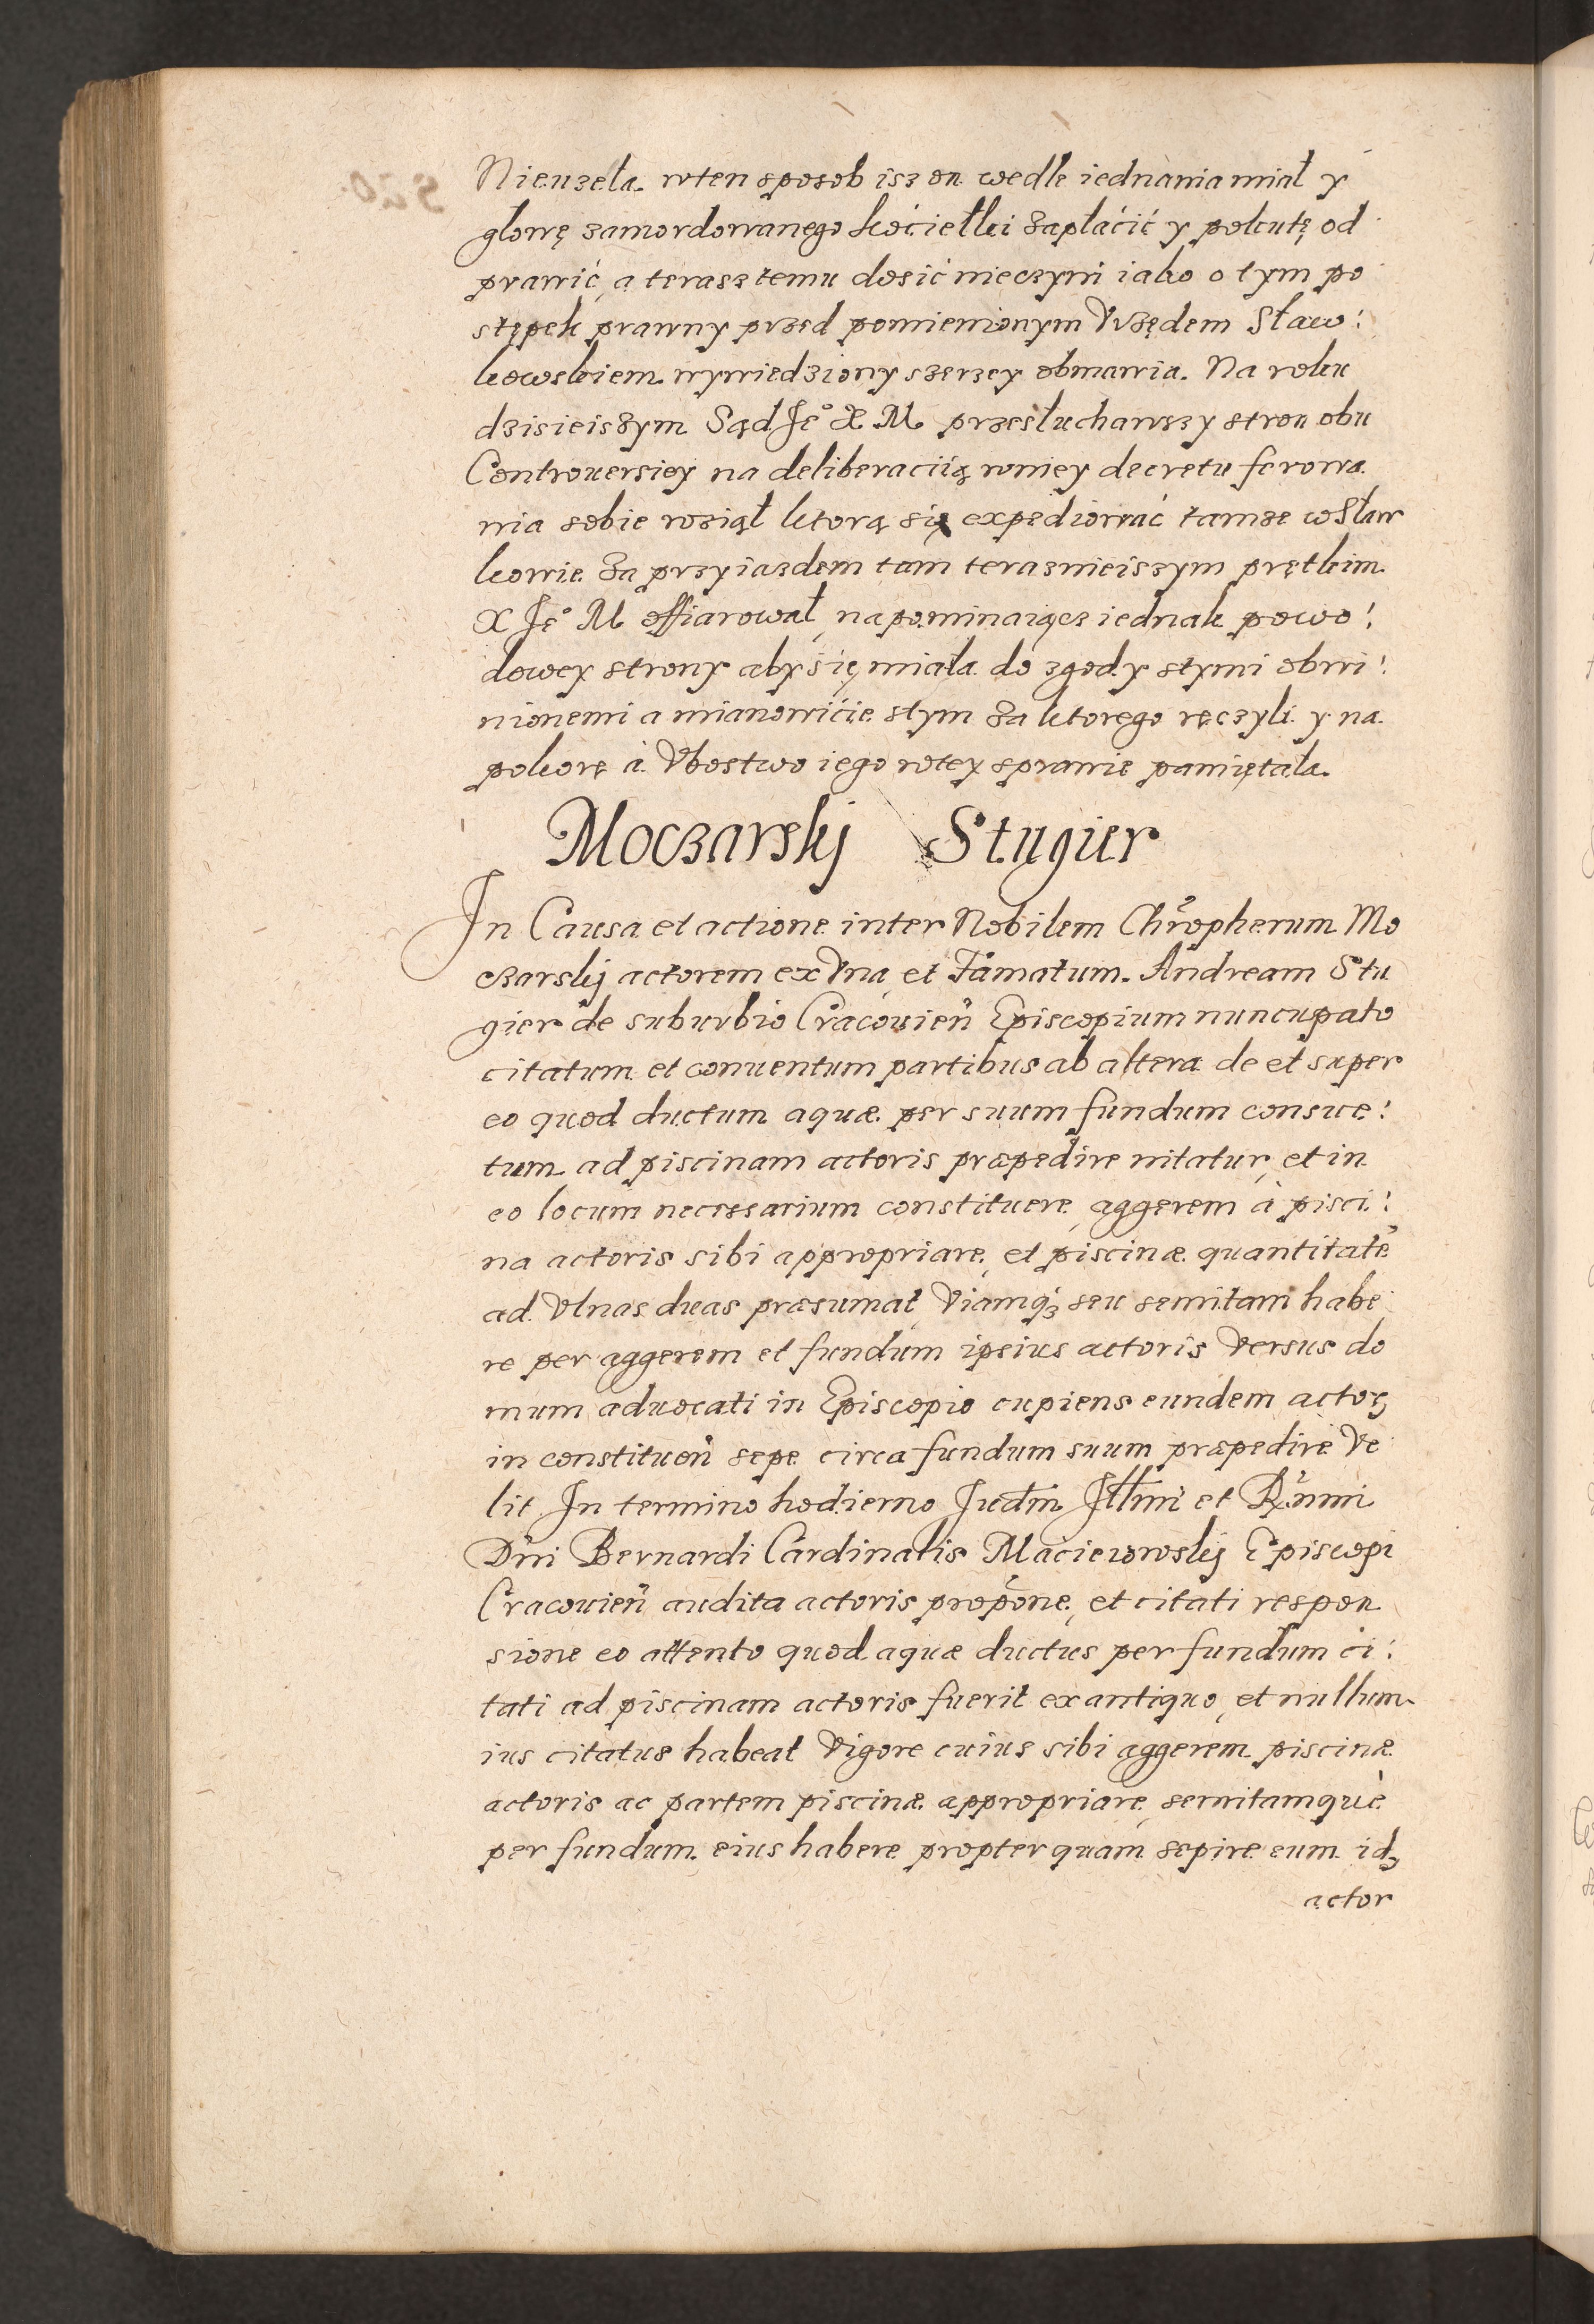 Nieuzeła. wten sposob isz on wedle iednania miał y
głowę zamordowanego kościełki zapłaćić y pokutę od
prawić, a terasz temu dosić nieczyni iako o tym po
stępek prawny przed pomienionym Vrzędem Sław:
kowskiem wywiedziony szerzey obmawia. Na roku
dzisieiszym Sąd Je° X M przesłuchawszy stron obu
Controuersiey na deliberaciią wniey decretu ferowa
nia sobie wziął ktorą się expediować tamze w Sław
kowie. Za przyiazdem tam terasznieiszym prętkim
X Je° M offiarował, napominaiącz iednak powo:
dowey strony aby się miała do zgody stymi obwi:
nionemi a mianowićie stym za ktorego ręczyli y na
pokorę à Vbostwo iego wtey sprawie pamiętała.
Moczarskj Stugier
In Causa et actione inter Nobilem Chr̃opherum Mo
czarskj actorem ex Vna, et Famatum Andream Stu
gier de suburbio Cracouien̄ Episcopium nuncupato
citatum et conuentum partibus ab altera de et super
eo quod ductum aquæ per suum fundum consue:
tum ad piscinam actoris præpedire nitatur, et in
eo locum necessarium constituere, aggerem à pisci:
na actoris sibi appropriare, et piscinæ quantitatē
ad Vlnas duas præsumat, Viamq́ꝫ seu semitam habe
re per aggerem et fundum ipsius actoris Versus do
mum aduocati in Episcopio cupiens eundem actorꝫ
in constituen̄ sepe circa fundum suum præpedire Ve
lit In termino hodierno Judm̄ Jllm̄i et Rn̄mi
Dn̄i Bernardi Cardinalis Macieiowskj Episcopi
Cracouien̄ audita actoris propōne, et citati respon
sione eo attento quod aquæ ductus per fundum ci:
tati ad piscinam actoris fuerit ex antiquo, et nullum
ius citatus habeat Vigore cuius sibi aggerem piscinæ
actoris ac partem piscinæ appropriare, semitamquè
per fundum eius habere propter quam sepire eum idꝫ
actor